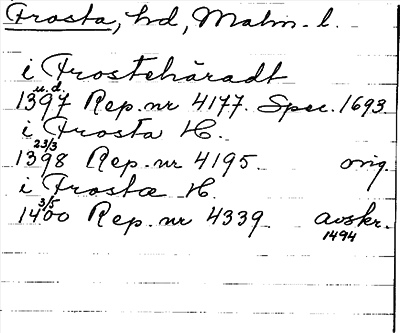 Frosta, hd, Malm. l.
i Frostehäradt
u.d.
1397 Rep. nr 4177. Spec. 1693
i Frosta H.
23/3
1398 Rep. nr 4195 orig.
i Frostæ H.
3/5
1400 Rep. nr 4339 avskr.
1494